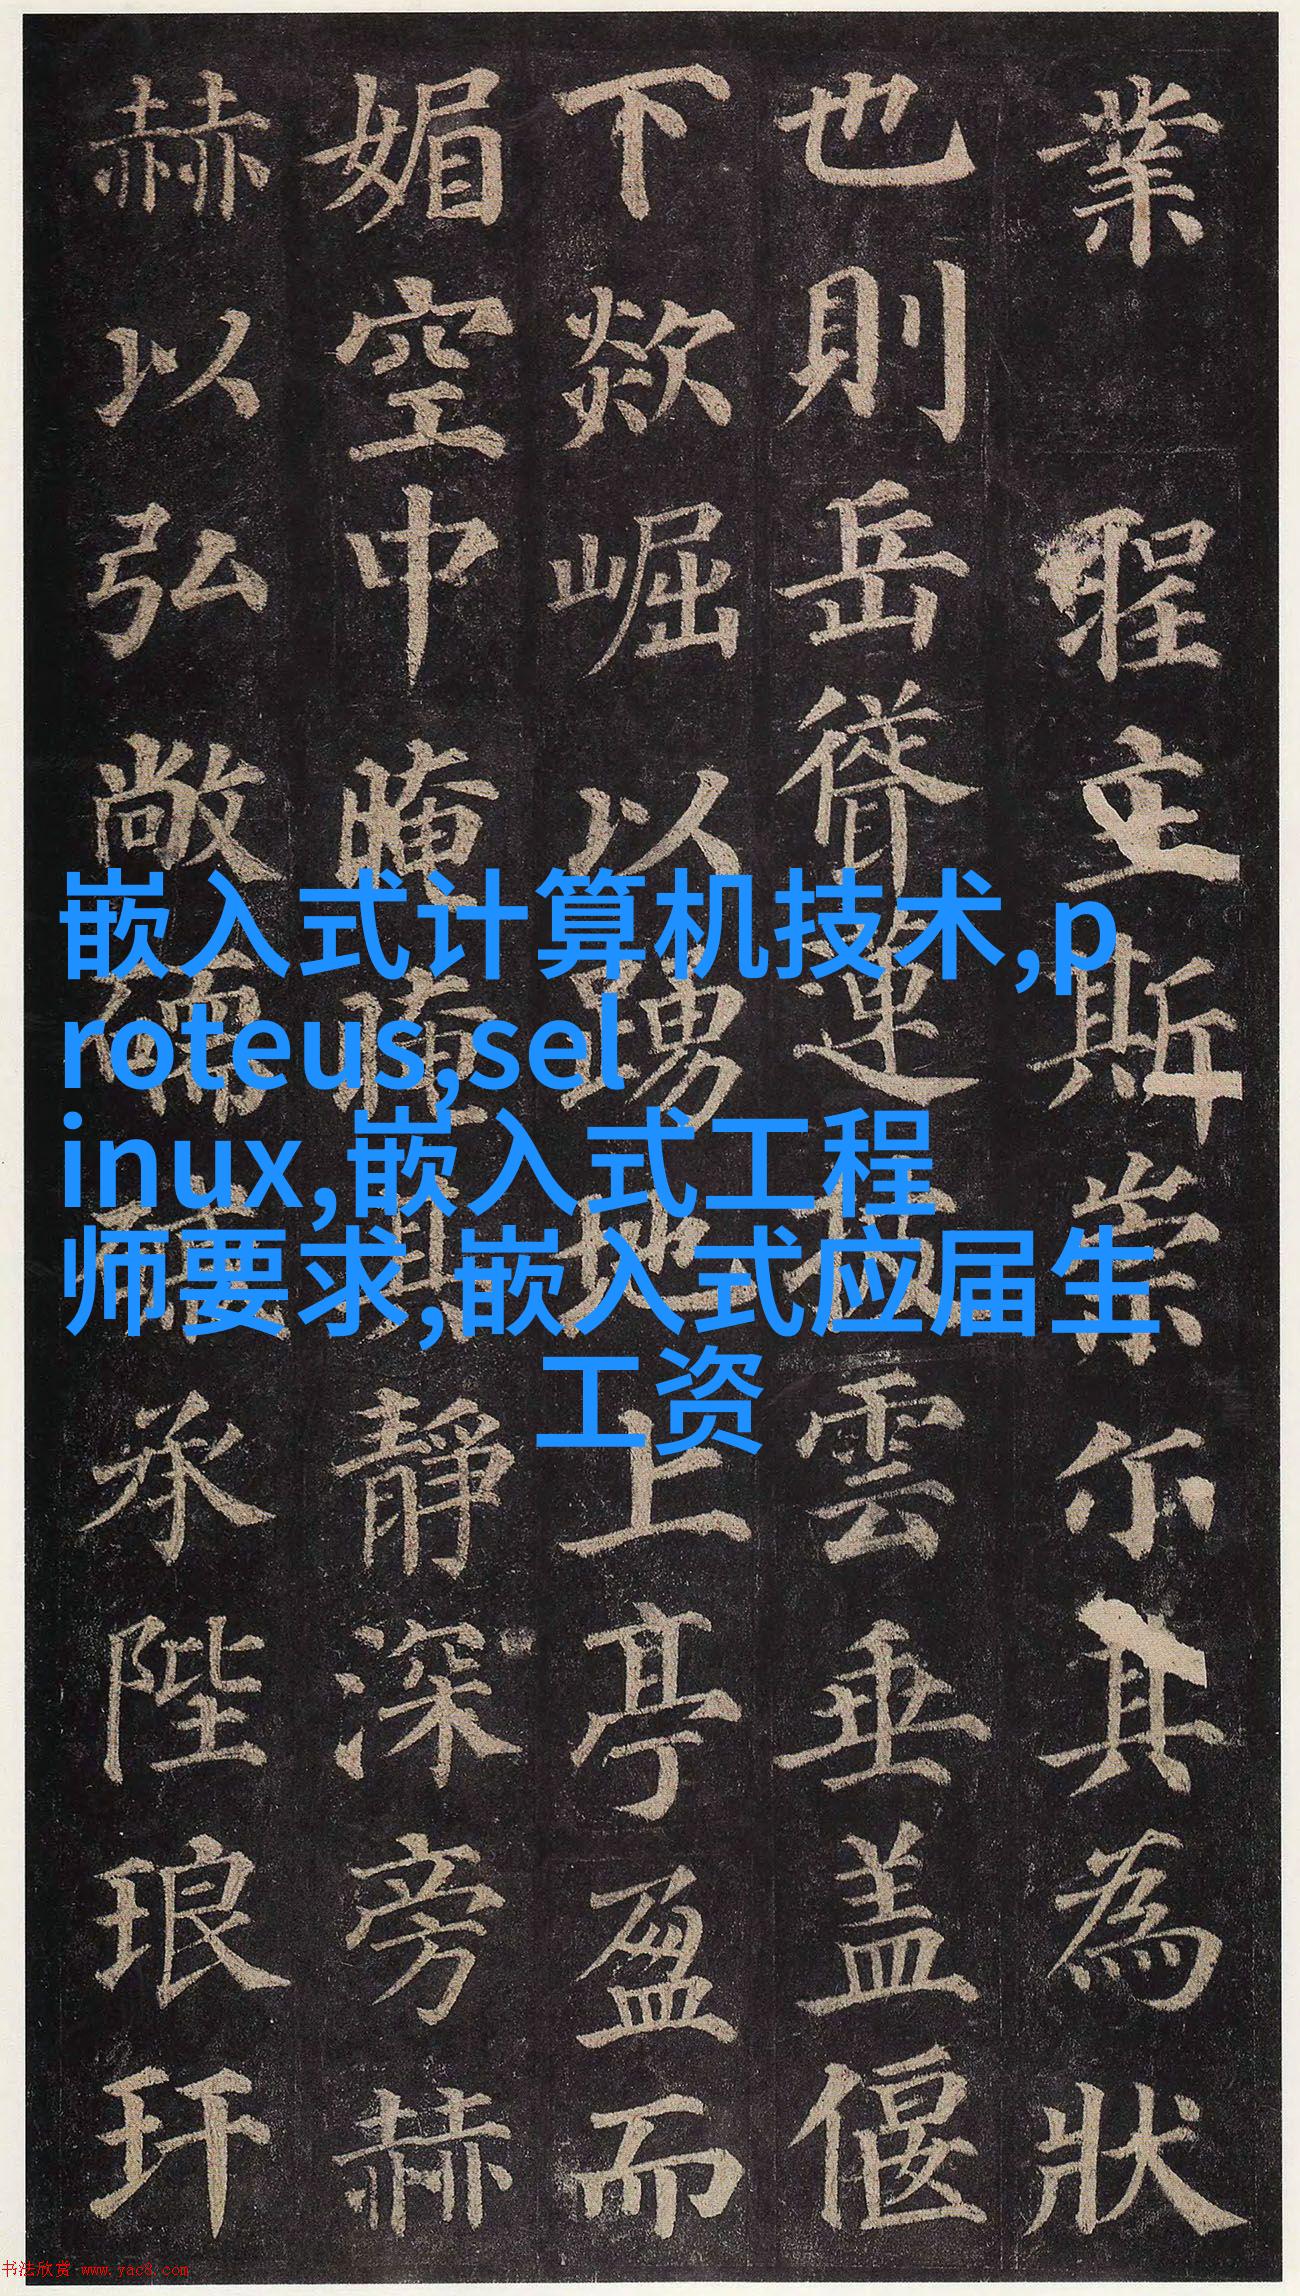 業 聖立斯崇尒其為狀
也則岳聳蓮拔雲垂盖偃
下欻崛以踴地上亭盈而
媚空中晻其靜深旁赫
赫以弘敞承陛琅玕
嵌入式计算机技术,p
roteus,sel
inux,嵌入式工程
师要求,嵌入式应届生
工资
书法欣赏 www.yac8.com